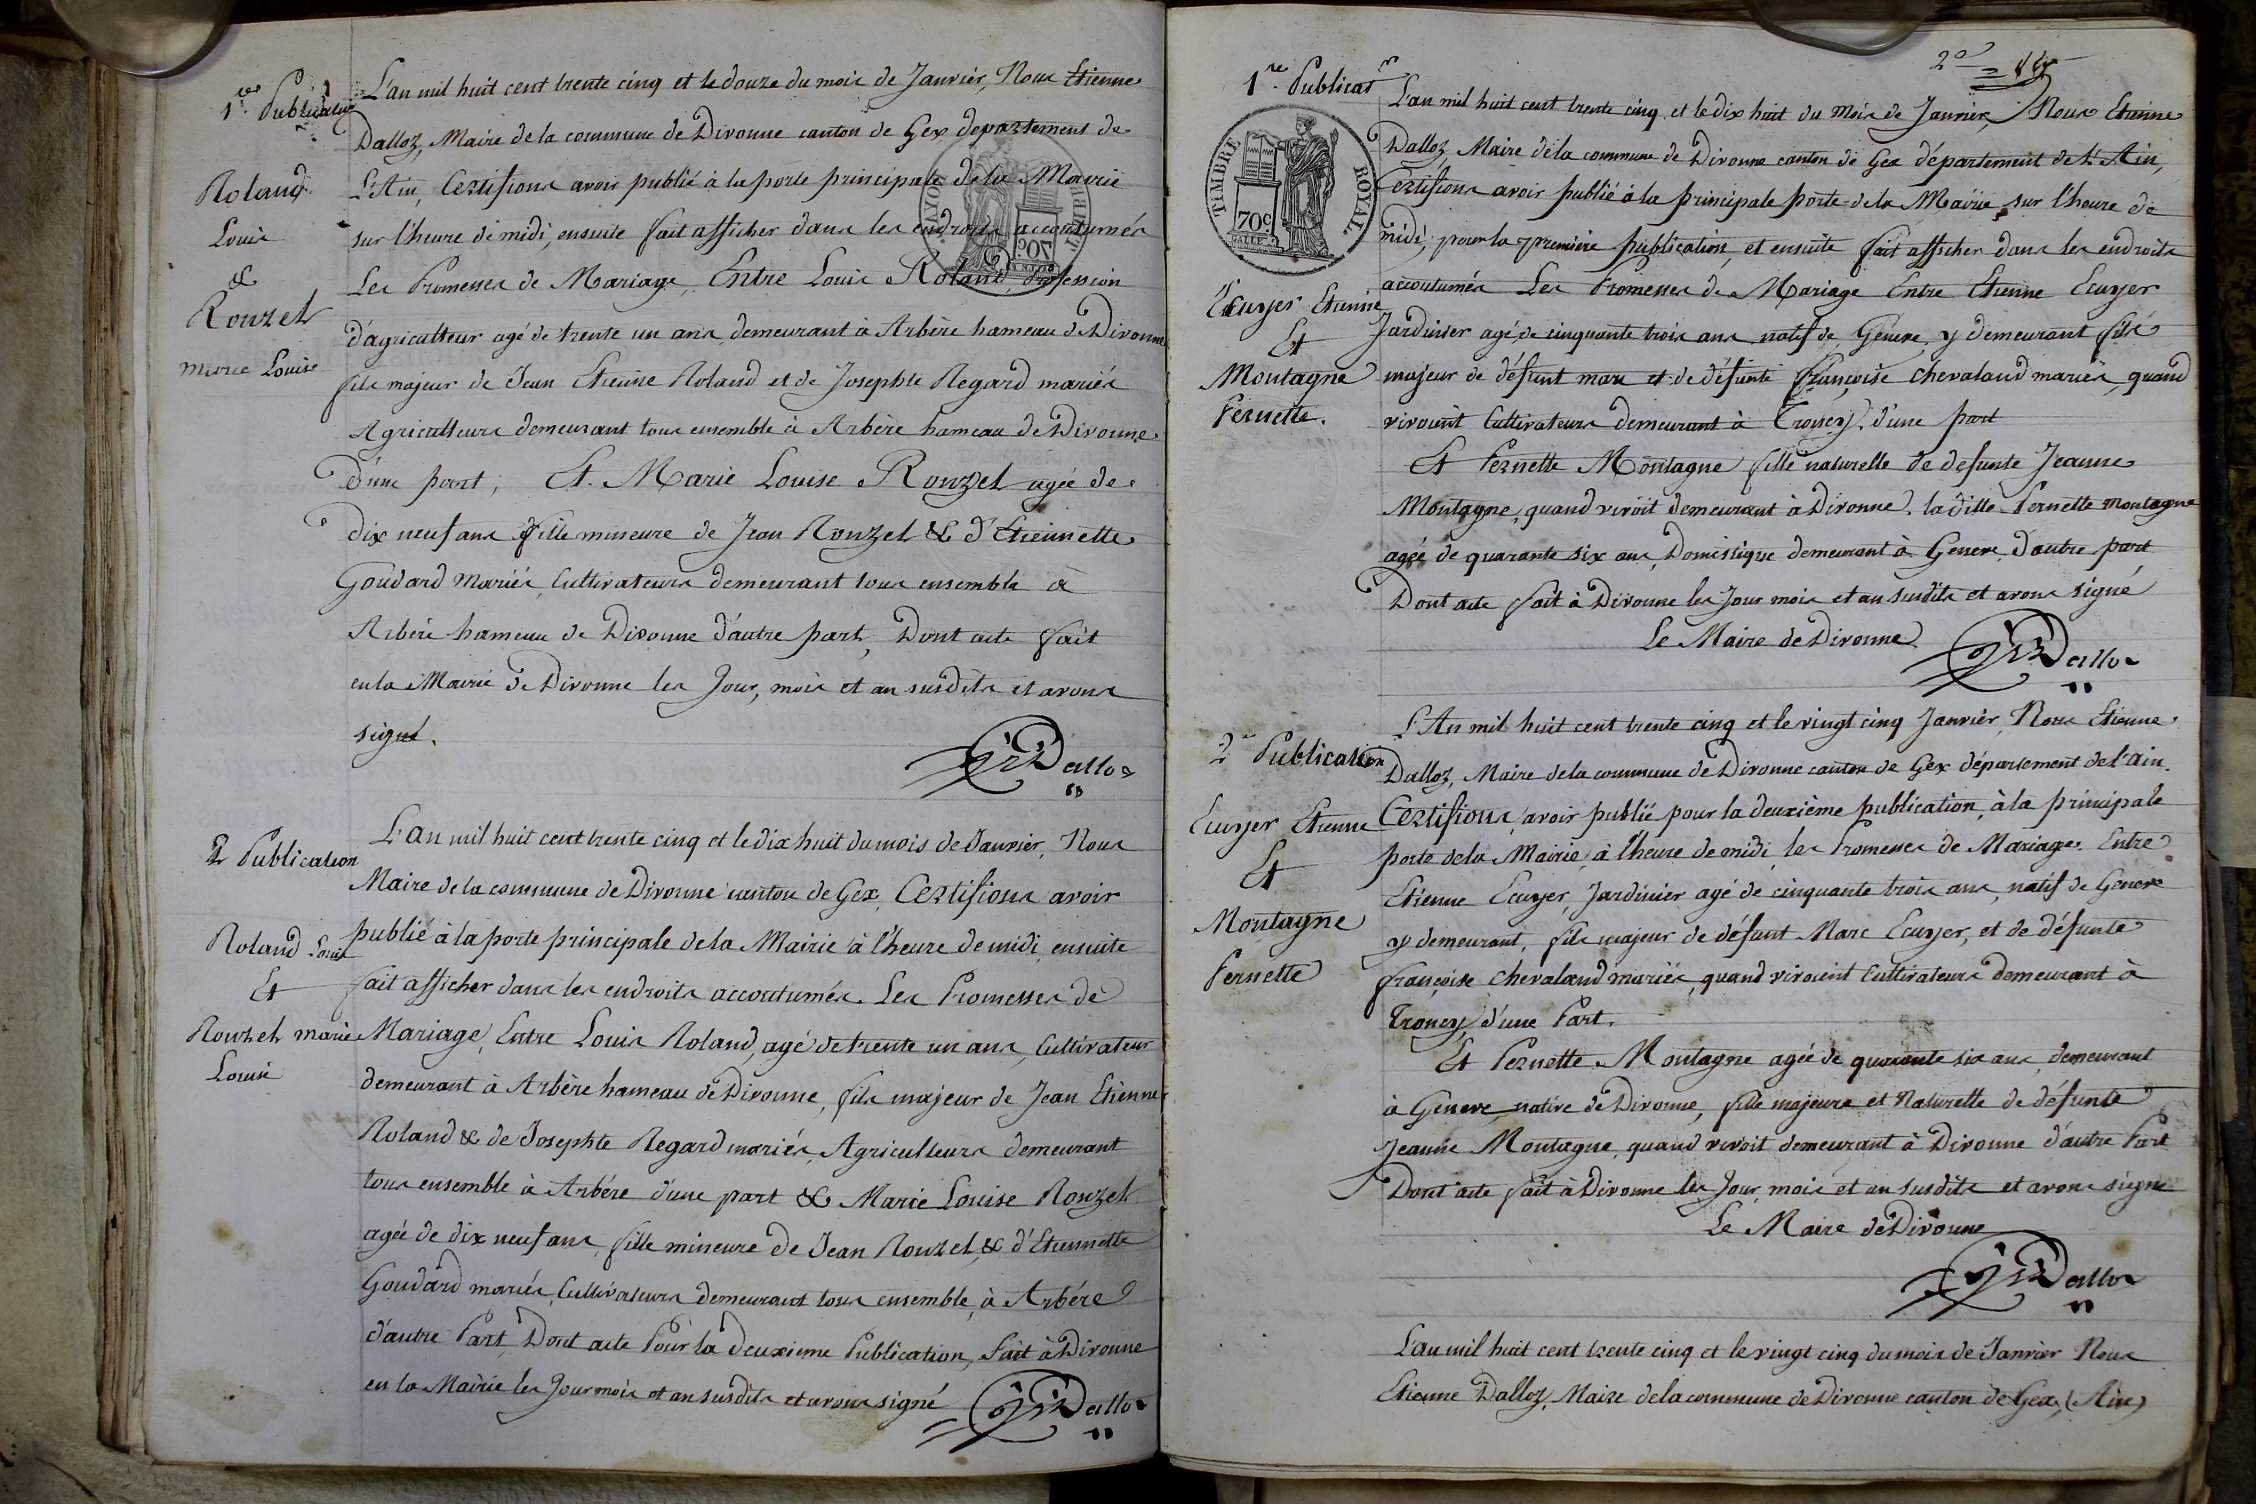 1.re Publication
Roland
Louis
&
Rouzet
Marie Louise
L'an mil huit cent trente cinq et le douze du mois de Janvier, Nous Etienne
Dalloz, Maire de la commune de Divonne canton de Gex departement de
L'Ain, Certifions avoir publié à la porte principale de la Mairie
sur l'heure de midi, ensuite fait afficher dans les endroits accoutumés
Les Promesses de Mariage, Entre Louis Roland, profession
d'agriculteur agé de trente un ans, demeurant à Arbère hameau de Divonne
fils majeur de Jean Etienne Roland et de Josephte Regard mariés
Agriculteurs demeurant tous ensemble à Arbère hameau de Divonne
d'une part; Et Marie Louise Rouzet agée de
dix neuf ans fille mineure de Jean Rouzet & d'Etiennette
Goudard Mariés, Cultivateurs demeurant tous ensemble à
Arbère hameau de Divonne d'autre part, Dont acte fait
en la Mairie de Divonne les Jour, mois et an susdits et avons
signé.
Dalloz
2 Publication
Roland Louis
Et
Rouzet marie
Louise
L'an mil huit cent trente cinq et le dix huit du mois de Janvier, Nous
Maire de la commune de Divonne canton de Gex, Certifions avoir
publié à la porte principale de la Mairie à l'heure de midi, ensuite
fait afficher dans les endroits accoutumés. Les Promesses de
Mariage, Entre Louis Roland, agé de trente un ans, Cultivateur
demeurant à Arbère hameau de Divonne, fils majeur de Jean Etienne
Roland & de Josephte Regard mariés, Agriculteurs demeurant
tous ensemble à Arbére d'une part & Marie Louise Rouzet
agée de dix neuf ans, fille mineure de Jean Rouzet, & d'Etiennette
Goudard mariés, Cultivateurs demeurant tous ensemble, à Arbére
d'autre Part, Dont acte Pour la Deuxieme Publication, Fait à Divonne
en la Mairie les Jour mois et an susdits et avons signé
Dalloz
2o
1.re Publicat.on
TIMBRE ROYAL.
70c
Ecuyer Etienne
Et
Montagne
Pernette.
L'an mil huit cent trente cinq et le dix huit du Mois de Janvier, Nous Etienne
Dalloz Maire de la commune de Divonne canton de Gex département de L'Ain,
Certifions avoir publié à la principale porte de la Mairie, sur l'heure de
midi, pour la premiére publication, et ensuite fait afficher dans les endroits
accoutumés Les Promesses de Mariage Entre Etienne Ecuyer
Jardinier agé de cinquante trois ans natif de Génève, y demeurant fils
majeur de défunt marc et de défunte françoise chevaland mariés, quand
vivoient Cultivateurs demeurant à Troncy, d'une part
Et Pernette Montagne fille naturelle de defunte Jeanne
Montagne, quand vivoit demeurant à Divonne. la dille Pernette Montagne
agée de quarante six ans, Domistique demeurant à Geneve, d'autre part
Dont acte fait à Divonne les Jour mois et an susdits et avons signé
Le Maire de Divonne
Dalloz
2e Publication
Ecuyer Etienne
Et
Montagne
Pernette
L'An mil huit cent trente cinq et le vingt cinq Janvier, Nous Etienne
Dalloz, Maire de la commune de Divonne canton de Gex département de l'ain.
Certifions, avoir publié pour la deuxième publication, à la principale
porte de la Mairie, à l'heure de midi, les Promesses de Mariage. Entre
Etienne Ecuyer, Jardinier agé de cinquante trois ans, natif de Geneve
y demeurant, fils majeur de défunt Marc Ecuyer, et de défunte
françoise chevaland mariés, quand vivoient Cultivateurs demeurant à
Troncy, d'une Part.
Et Pernette Montagne agée de quarante six ans, demeurant
à Geneve, native de Divonne, fille majeure et Naturelle de défunte
Jeanne Montagne, quand vivoit demeurant à Divonne d'autre Part
Dont acte fait à Divonne les Jour, mois et an susdits et avons signé
Le Maire de Divonne
Dalloz
L'an mil huit cent trente cinq et le vingt cinq du mois de Janvier Nous
Etienne Dalloz, Maire de la commune de Divonne canton de Gex, (Ain)